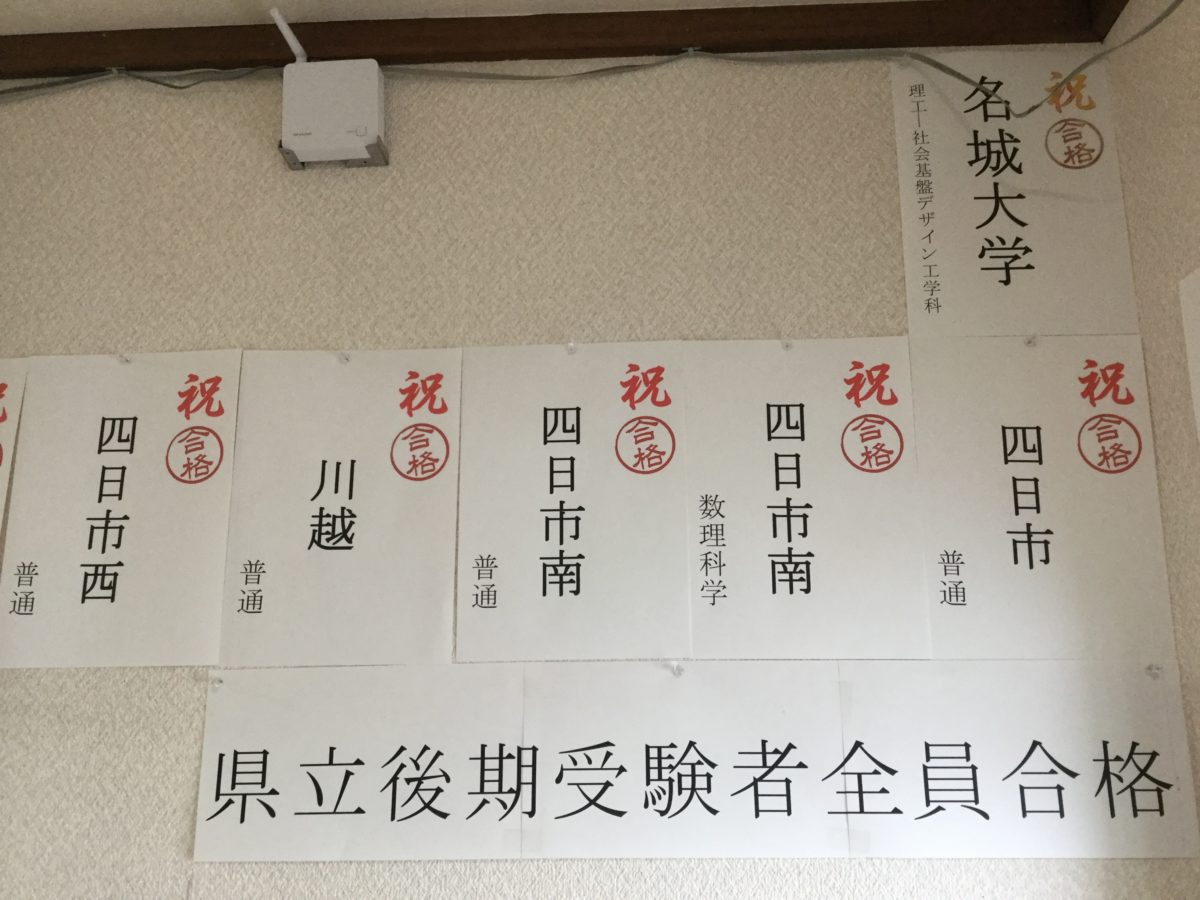 祝
合格
名城大学
理工―社会基盤デザイン工学科
祝
合格
四日市
普通
祝
合格
四日市南
数理科学
祝
合格
四日市南
普通
祝
合格
川越
普通
祝
合格
四日市西
普通
県立後期受験者全員合格